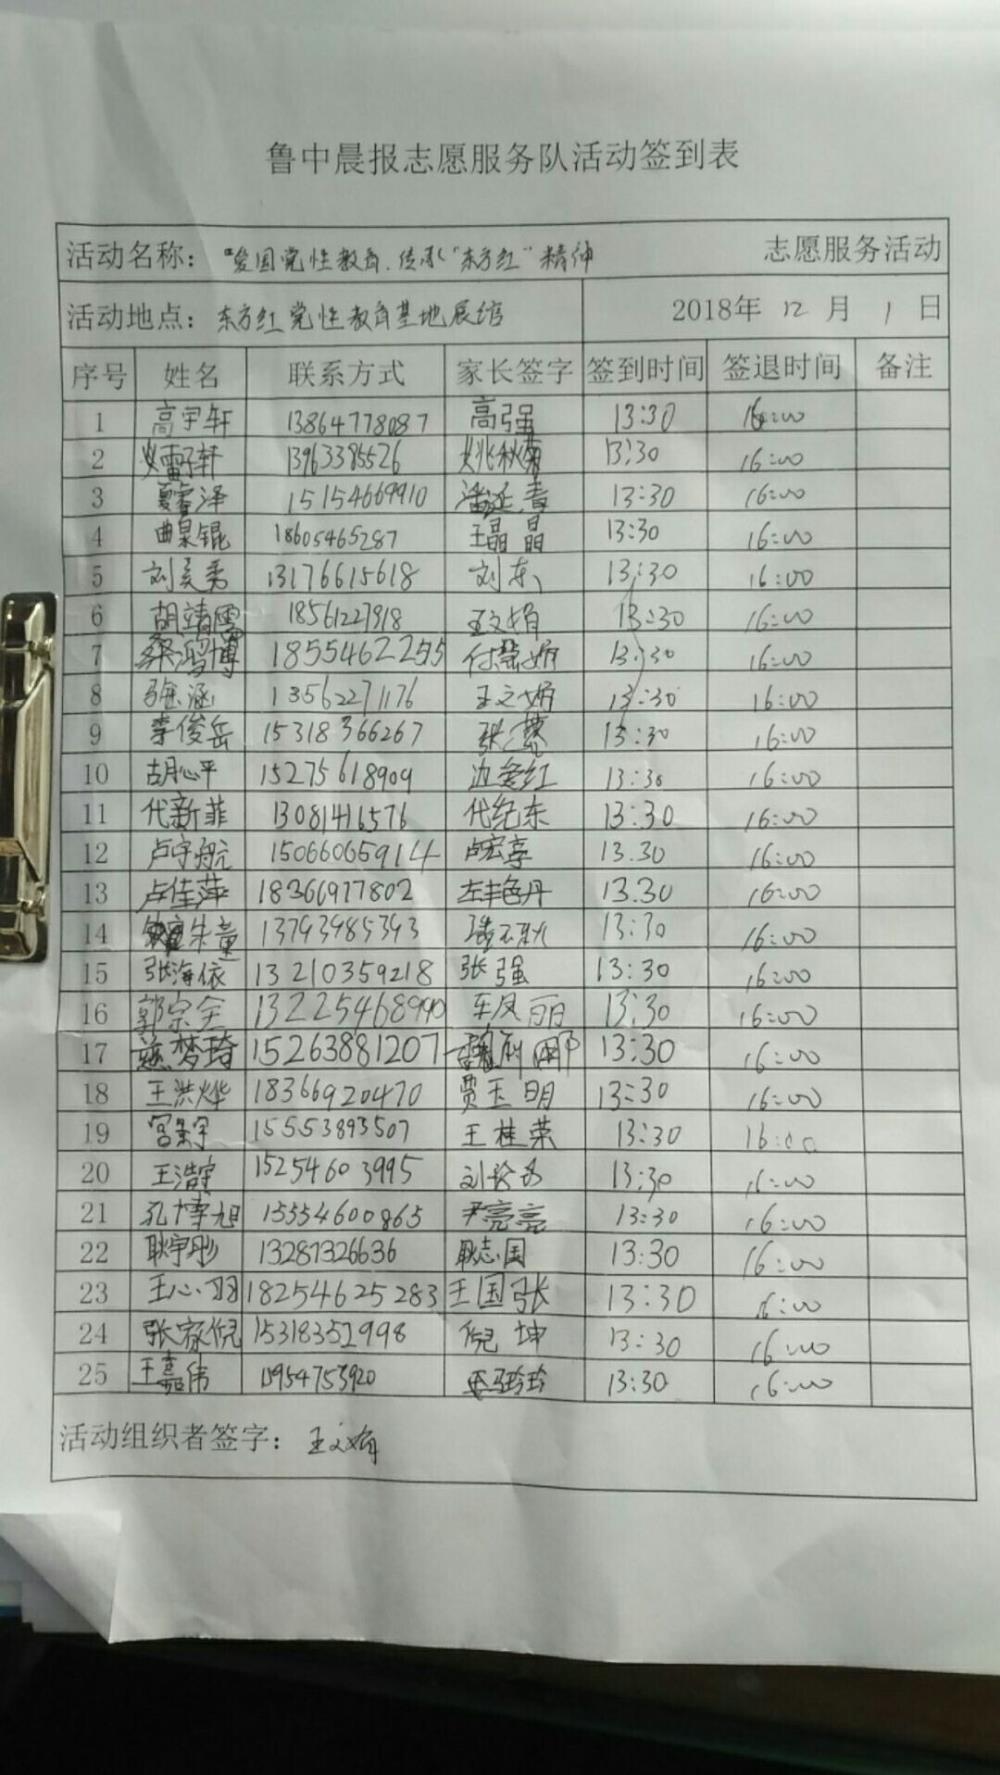 鲁中晨报志愿服务队活动签到表
活动名称： "爱国党性教育.传承"东方红"精神 志愿服务活动
活动地点： 东方红党性教育基地展馆 2018年 12 月 1 日
序号 姓名 联系方式 家长签字 签到时间 签退时间 备注
1 高宇轩 13864778087 高强 13:30 16:00
2 轩 13963385526 姚秋菊 13:30 16:00
3 夏睿泽 15154669910 潘延青 13:30 16:00
4 曲昊锟 18605465287 王晶晶 13:30 16:00
5 刘美秀 13176615618 刘东 13:30 16:00
6 胡靖雪 18561227918 王文娟 13:30 16:00
7 桑鸿博 18554622555 付娟 13:30 16:00
8 张涵 13562271176 王文娟 13:30 16:00
9 李俊岳 15318366267 张 13:30 16:00
10 胡心平 15275618909 边爱红 13:30 16:00
11 代新菲 13081416576 代纪东 13:30 16:00
12 卢宇航 15066065914 卢宏亭 13.30 16:00
13 卢佳萍 18366977802 左艳丹 13.30 16:00
14 朱童 13793985393 13:30 16:00
15 张海依 13210359218 张强 13:30 16:00
16 郭宗全 13225468990 车凤丽 13:30 16:00
17 燕梦琦 15263881207 13:30 16:00
18 王洪烨 18366920470 贾玉明 13:30 16:00
19 宫宇 15553893507 王桂荣 13:30 16:00
20 王浩宇 15254603995 刘 13:30 16:00
21 孔博旭 15554600865 尹亮亮 13:30 16:00
22 耿宇彤 13287326636 耿志国 13:30 16:00
23 王心羽 18254625283 王国张 13:30 16:00
24 张家倪 15318352998 倪坤 13:30 16:00
25 王嘉伟 15954753920 玲玲 13:30 16:00
活动组织者签字： 王文娟